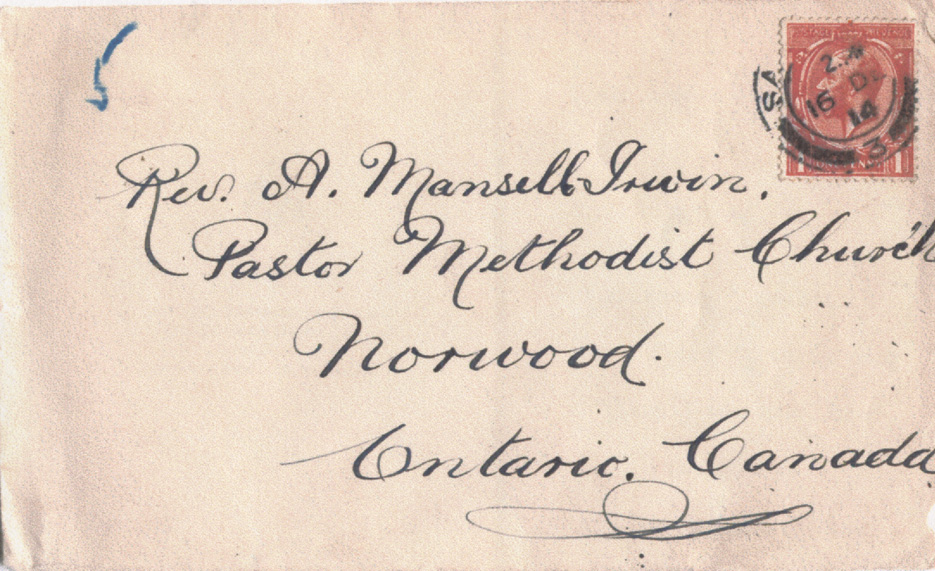 2.
16 D
14
SA
3
1 1
Rev. A. Mansell Irwin,
Pastor Methodist Church
Norwood.
Ontario. Canada